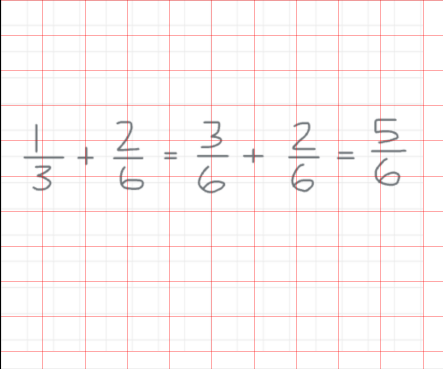 1/3 + 2/6 = 3/6 + 2/6 = 5/6